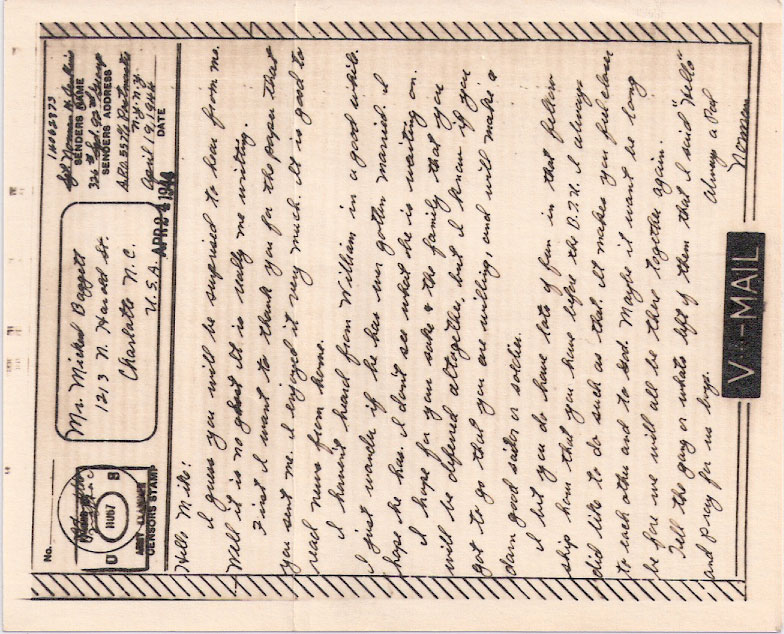 No.
CENSORS STAMP
Mr. Michael Baggett
1213 N. Harold St.
Charlotte N.C.
U.S.A.
14162873
Sgt. Norman H.
SENDERS NAME
326th 92nd Group
SENDERS ADDRESS
A.P.O. 557 % Postmaster
N.Y. N.Y.
April 19, 1944
DATE
Hello Mike:
I guess you will be suprised to hear from me.
Well it is no ghost it is really me writing.
First I want to thank you for the paper that
you sent me. I enjoyed it very much. It is good to
read news from home.
I haven't heard from William in a good while.
I just wonder if he has ever gotten married. I
hope he has. I don't see what he is waiting on.
I hope for you sake & the family that you
will be deferred altogether, but I know if you
got to go that you are willing, and will make a
darn good sailor or soldier.
I bet you do have lots of fun in that fellow
ship hour that you have before the B.T.U. I always
did like to do such as that. It makes you feel close
to each other and to God. Maybe it want be long
be fore we will all be there together again.
Tell the gang or whats left of them that I said "Hello"
and pray for us boys.
Always a Pal
Norman
V-MAIL